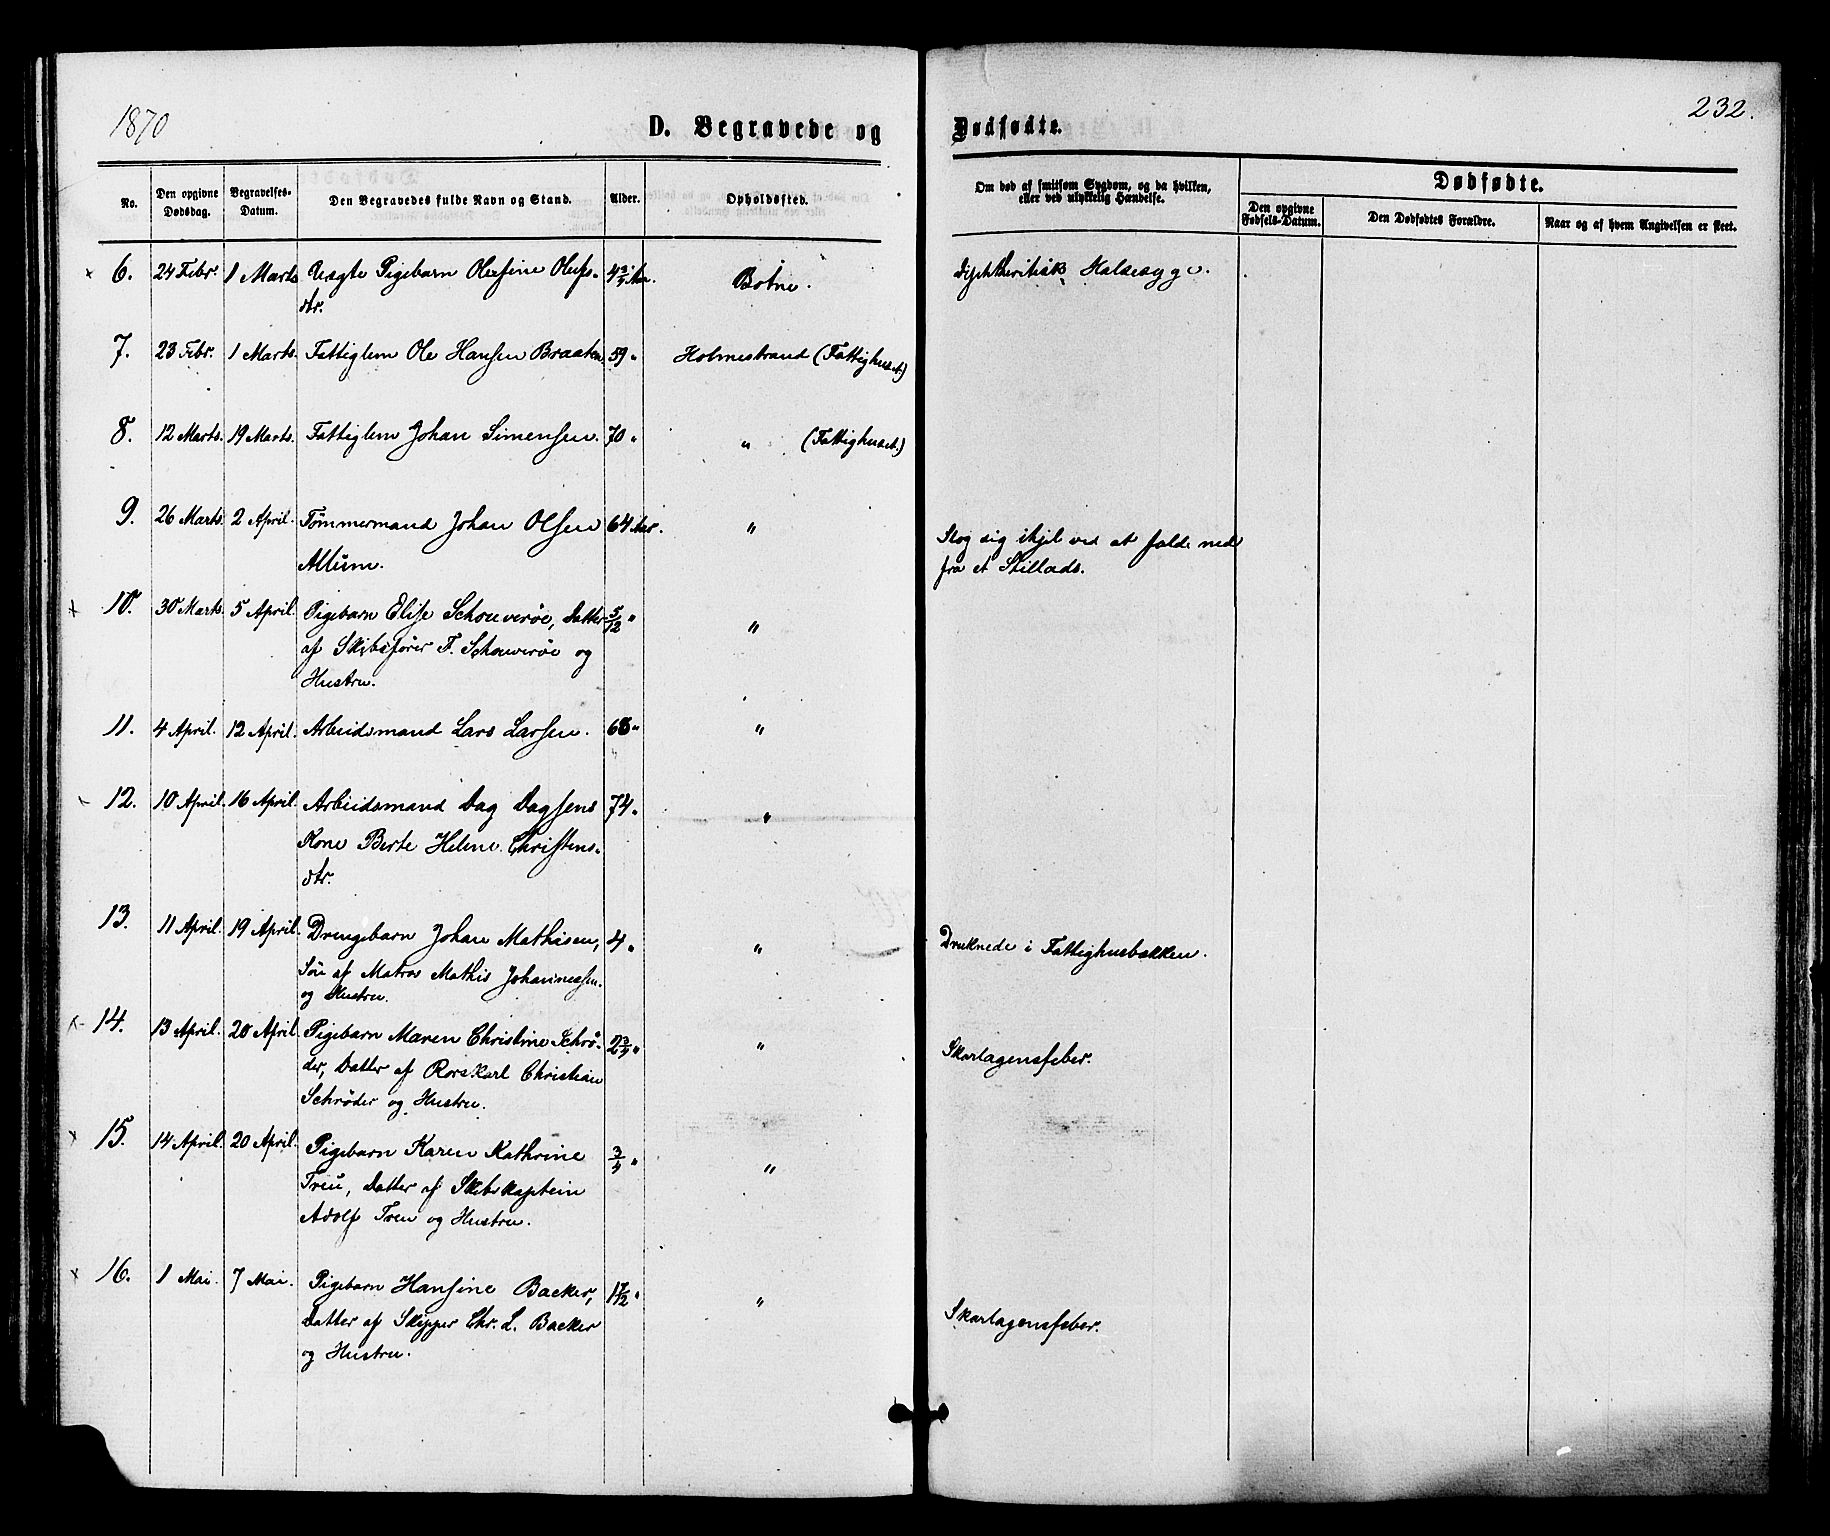 1870
232.
D. Begravede og Dødfødte.
No.
Den opgivne Dødsdag.
Begravelses-Datum.
Den Begravedes fulde Navn og Stand.
Alder.
Opholdssted.
Om død af smitsom Sygdom, og da hvilken, eller ved ulykkelig Hændelse.
Dødfødte.
Den opgivne Fødsels-Datum.
Den Dødfødtes Forældre.
Naar og af hvem Angivelsen er skeet.
6. 24 Febr. 1 Marts Uægte Pigebarn Olefine Olefs- 4 3/4 Aar. Botne. diphtheritisk Halssyge.
dtr.
7. 23 Febr. 1 Marts. Fattiglem Ole Hansen Braaten 59 " Holmestrand (Fattighuset.)
8. 12 Marts. 19 Marts. Fattiglem Johan Simensen. 70 " " (Fattighuset.)
9. 26 Marts. 2 April. Tømmermand Johan Olsen 64 Aar. " Slog sig ihjel ved at falde ned
Allum. fra et Stillads.
10. 30 Marts. 5 April. Pigebarn Elise Schouverøe, Datter 5/12 " "
af Skibsfører F. Schouverøe og
Hustru.
11. 4 April. 12 April. Arbeidsmand Lars Larsen. 68 " "
12. 10 April. 16 April. Arbeidsmand Dag Dagsens 74 " "
Kone Berte Helene Christens-
dtr.
13. 11 April. 19 April. Drengebarn Johan Mathisen, 4 " " Druknede i Fattighusbækken.
Søn af Matros Mathis Johannessen
og Hustru.
14. 13 April. 20 April. Pigebarn Maren Christine Schrø- 2 3/4 " " Skarlagensfeber.
der, Datter af Rorskarl Christian
Schrøder og Hustru.
15. 14 April. 20 April. Pigebarn Karen Kathrine 3/4 " "
Treu, Datter af Skibskaptein
Adolf Treu og Hustru.
16. 1 Mai. 7 Mai. Pigebarn Hansine Backer, 1 1/2 " " Skarlagensfeber.
Datter af Skipper Chr. L. Backer
og Hustru.